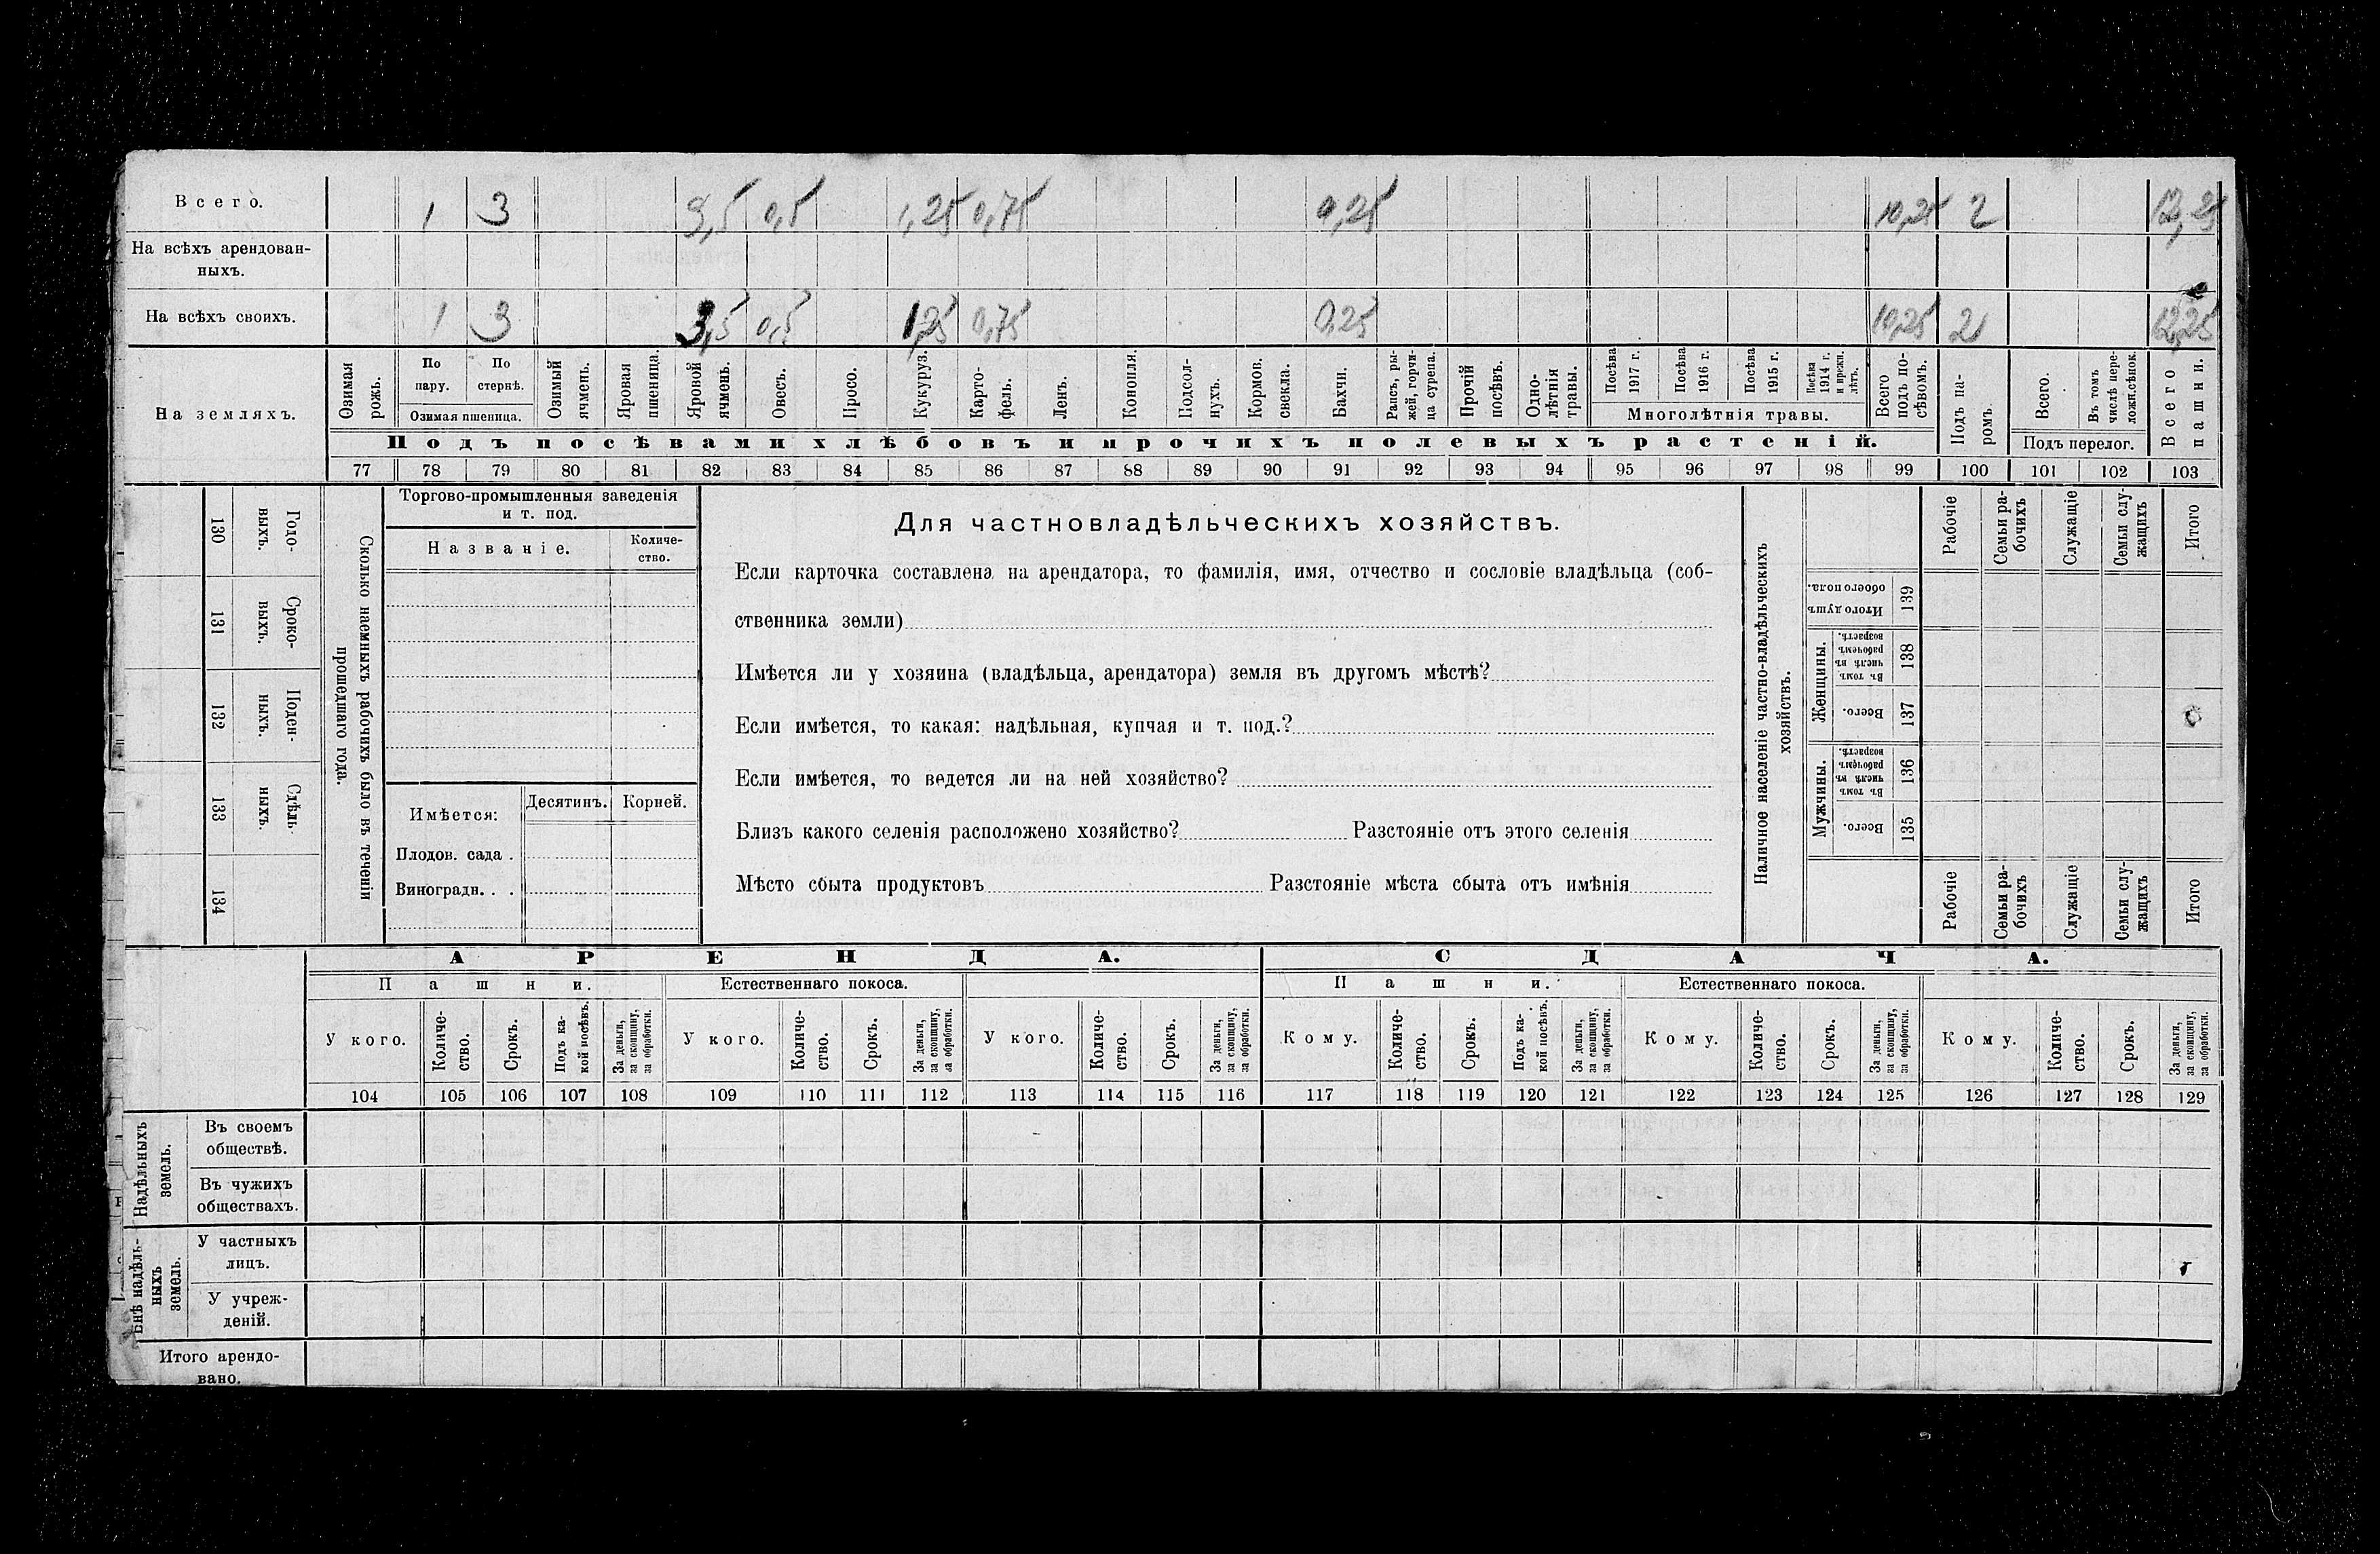 Всего. 1 3 3,5 0,5 1,25 0,75 0,25 10,25 2 12,25
На всѣхъ арендован-
ныхъ.
На всѣхъ своихъ. 1 3 3,5 0,5 1,25 0,75 0,25 10,25 2 12,25
На земляхъ.
Озимая рожь.
По пару.
По стернѣ.
Озимая пшеница.
Озимый ячмень.
Яровая пшеница.
Яровой ячмень.
Овесъ.
Просо.
Кукуруз.
Карто-
фель.
Ленъ.
Конопля.
Подсол-
нухъ.
Кормов. свекла.
Бахчи.
Рапсъ, ры-
жей, горчи-
ца сурепа.
Прочій посѣвъ.
Одно-
лѣтнія травы.
Посѣва 1917 г.
Посѣва 1916 г.
Посѣва 1915 г.
Посѣва 1914 г. и прежн. лѣтъ.
Многолѣтнія травы.
Всего подъ по-
сѣвомъ.
Подъ посѣвами хлѣбовъ и прочихъ полевыхъ растеній.
Подъ па-
ромъ.
Всего.
Въ томъ числѣ пере-
ложн. сѣнок.
Подъ перелог.
Всего пашни.
77 78 79 80 81 82 83 84 85 86 87 88 89 90 91 92 93 94 95 96 97 98 99 100 101 102 103
130 Годо-
выхъ.
131 Сроко-
выхъ.
132 Поден-
ныхъ.
133 Сдѣль-
ныхъ.
134
Сколько наемныхъ рабочихъ было въ теченіи
прошедшаго года.
Торгово-промышленныя заведенія
и т. под.
Названіе.
Количе-
ство.
Имѣется:
Десятинъ.
Корней.
Плодов. сада .
Виноградн. . .
Для частновладѣльческихъ хозяйствъ.
Если карточка составлена на арендатора, то фамилія, имя, отчество и сословіе владѣльца (соб-
ственника земли)
Имѣется ли у хозяина (владѣльца, арендатора) земля въ другомъ мѣстѣ?
Если имѣется, то какая: надѣльная, купчая и т. под.?
Если имѣется, то ведется ли на ней хозяйство?
Близъ какого селенія расположено хозяйство? Разстояніе отъ этого селенія
Мѣсто сбыта продуктовъ Разстояніе мѣста сбыта отъ имѣнія
Наличное населеніе частно-владѣльческихъ
хозяйствъ.
Рабочіе
Семьи ра-
бочихъ
Служащіе
Семьи слу-
жащихъ
Итого
Итого душъ обоего пола. 139
Женщины.
Въ томъ числѣ въ рабочемъ возрастѣ. 138
Всего. 137
Мужчины.
Въ томъ числѣ въ рабочемъ возрастѣ. 136
Всего. 135
Рабочіе
Семьи ра-
бочихъ
Служащіе
Семьи слу-
жащихъ
Итого
АРЕНДА.
СДАЧА.
Пашни.
Естественнаго покоса.
Пашни.
Естественнаго покоса.
У кого.
Количе-
ство.
Срокъ.
Подъ ка-
кой посѣвъ.
За деньги, за скопщину, за обработки.
У кого.
Количе-
ство.
Срокъ.
За деньги, за скопщину, за обработки.
У кого.
Количе-
ство.
Срокъ.
За деньги, за скопщину, за обработки.
Кому.
Количе-
ство.
Срокъ.
Подъ ка-
кой посѣвъ.
За деньги, за скопщину, за обработки.
Кому.
Количе-
ство.
Срокъ.
За деньги, за скопщину, за обработки.
Кому.
Количе-
ство.
Срокъ.
За деньги, за скопщину, за обработки.
104 105 106 107 108 109 110 111 112 113 114 115 116 117 118 119 120 121 122 123 124 125 126 127 128 129
Надѣльныхъ
земель.
Въ своемъ
обществѣ.
Въ чужихъ
обществахъ.
Внѣ надѣль-
ныхъ
земель.
У частныхъ
лицъ.
У учреж-
деній.
Итого арендо-
вано.